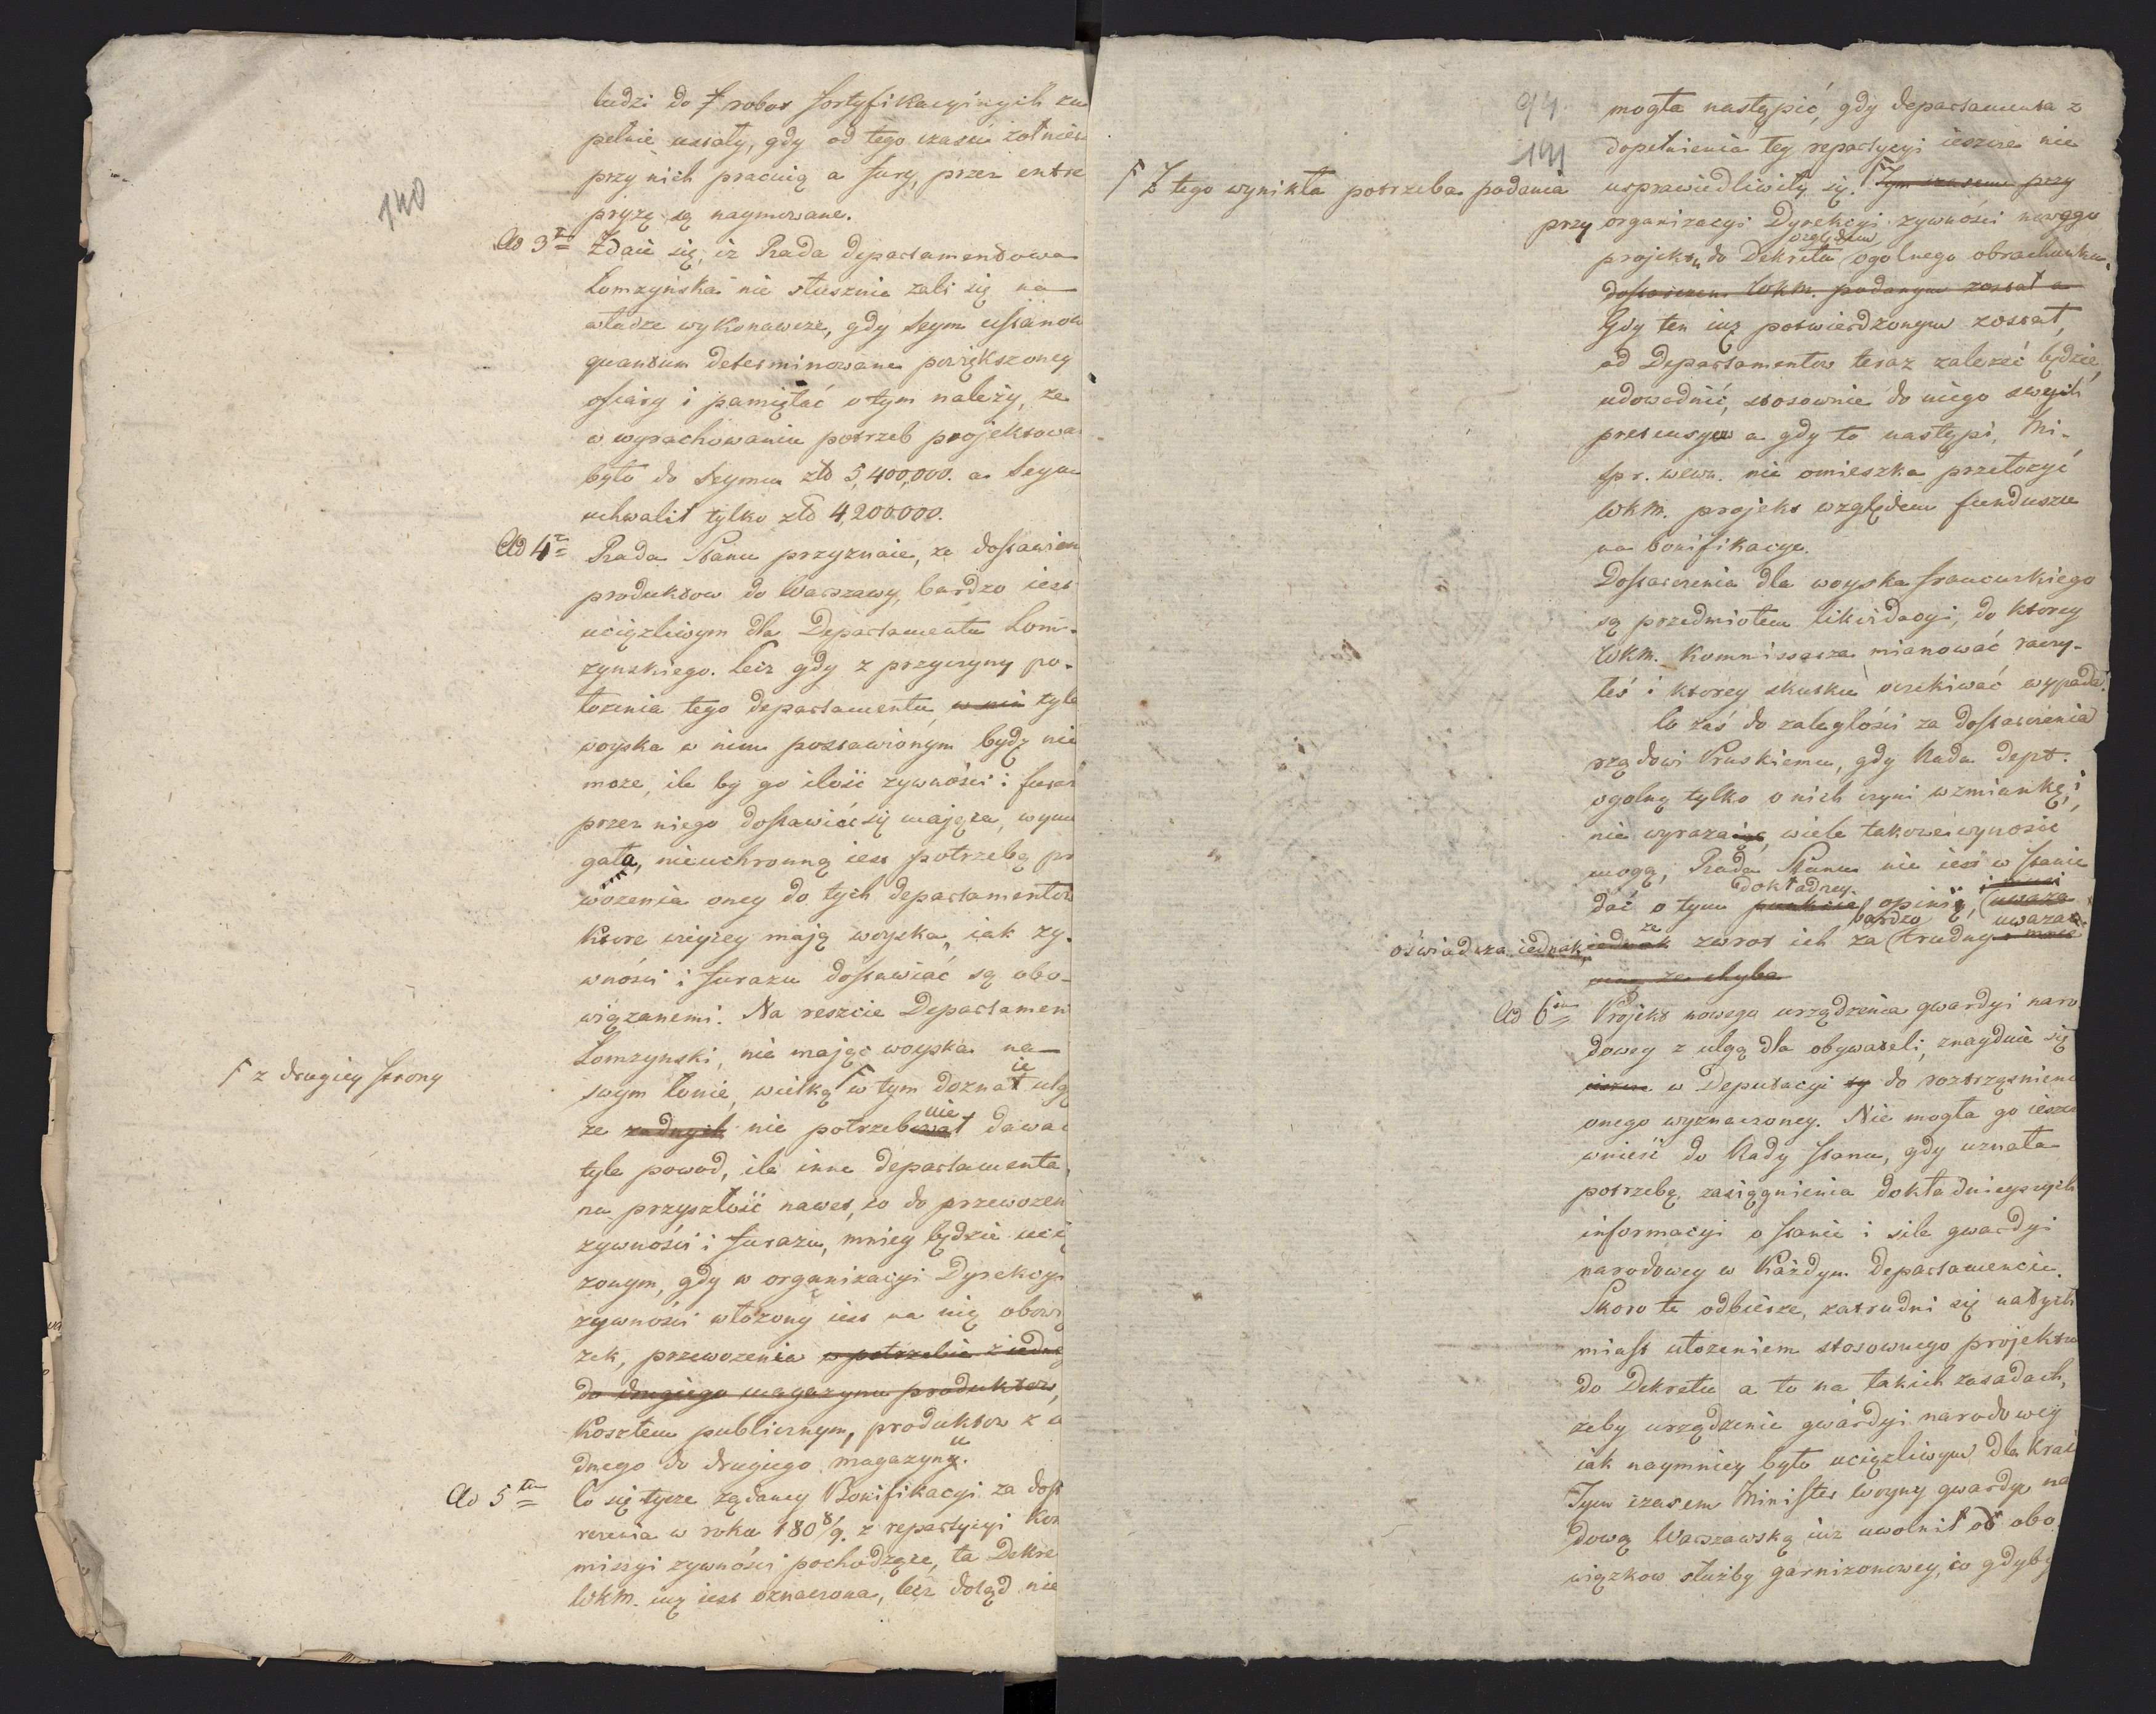 140
ludzi do robot fortyfikacyinych zu
pełnie ustały, gdy od tego czasu żołnier
przy nich pracuią a fury, przez entre
pryzę są naymowane.
Ad 3m Zdaie się, iż Rada departamentowa
Łomżyńska nie słusznie żali się na
władze wykonawcze, gdy Seym ustanow
quantum determinowane powiększoney
ofiary i pamiętać o tym należy, że
w wyrachowaniu potrzeb projektowa
było do Seymu złp 5,400,000. a Seym
uchwalił tylko złp 4,200000.
Ad 4m Rada Stanu przyznaie, że dostawien
produktow do Warszawy, bardzo iest
uciążliwym dla Departamentu Łom-
żynskiego. lecz gdy z przyczyny po-
łożenia tego departamentu, w nim tyle
woyska w nim postawionym bydź nie
może, ile by go ilość żywności i furaż
przez niego dostawić się maiąca, wyma
gała, nieuchronną iest potrzebą prze
wożenia oney do tych departamentow
ktore więcey maią woyska, iak ży-
wności i furażu dostawiać są obo-
wiązanemi. Na reszcie Departament
Łomżynski, nie maiąc woyska na
Γ z drugiey strony
swym łonie, wielką Γ w tym doznaie ulgę
że żadnych nie potrzebuie dawać
tyle powod, ile inne departamenta,
na przyszłość nawet, co do przewozen
żywności i furażu, mniey będzie ucią
żonym, gdy w organizacyi Dyrekcyi
żywności włożony iest na nią obowią
zek, przewożenia w potrzebie z iedne
do drugiego magazynu produktow,
kosztem publicznym, produktow z ie
dnego do drugiego magazynu.
Ad 5tm Co się tycze żądaney Bonifikacyi za dost
rczenia w roku 1808/9. z repartycyi Kom
missyi żywności pochodzące, ta Dekre
WKM. iuż iest oznaczona, lecz dotąd nie
94.
141
mogła nastąpić, gdy departamenta z
dopełnienia tey repartycyi ieszcze nie
usprawiedliwiły się. Γ Tym czasem przy
Γ Z tego wynikła potrzeba podania
przy organizacyi Dyrekcyi żywności nowego
względem
projektu do Dekretu ogolnego obrachunku,
dostarczen WKM. podanym został a
Gdy ten iuż potwierdzonym został,
od Departamentow teraz zależeć będzie,
udowodnić, stosownie do niego swych
pretensyw a gdy to nastąpi, Mi-
spr. wewn. nie omieszka przełożyć
WKM. projekt względem funduszu
na bonifikacye.
Dostarczenia dla woyska francuskiego
są przedmiotem likwidacyi, do ktorey
WKM. Kommissarza mianować raczy-
łeś i ktorey skutku oczekiwać wypada.
Co zaś do zaległości za dostarczenia
rządowi Pruskiemu, gdy Rada dept.
ogolną tylko o nich czyni wzmiankę, i
nie wyrażaiąc, wiele takowe wynosić
mogą, Rada Stanu nie iest w stanie
dokładney
dać o tym punkcie opinii, i musi uważa
oświadcza iednak, iednak że zwrot ich za bardzo trudny uważa
oną że chyba
Ad 6m Projekt nowego urządzenia gwardyi naro
dowey z ulgą dla obywateli, znayduie się
ieszcze w Deputacyi do roztrząsnieni
onego wyznaczoney. Nie mogła go ieszcze
wnieść do Rady Stanu, gdy uznała
potrzebę zasiągnienia dokładnieyszych
informacyi o stanie i sile gwardyi
narodowey w każdym Departamencie.
Skoro te odbierze, zatrudni się natych
miast ułożeniem stosownego projektu
do Dekretu a to na takich zasadach,
żeby urządzenie gwardyi narodowey
iak naymniey było uciążliwym dla Kraiu
Tym czasem Minister Woyny gwardyę na
dową Warszawską iuż uwolnił od obo
wiązkow służby garnizonowey, co gdyby